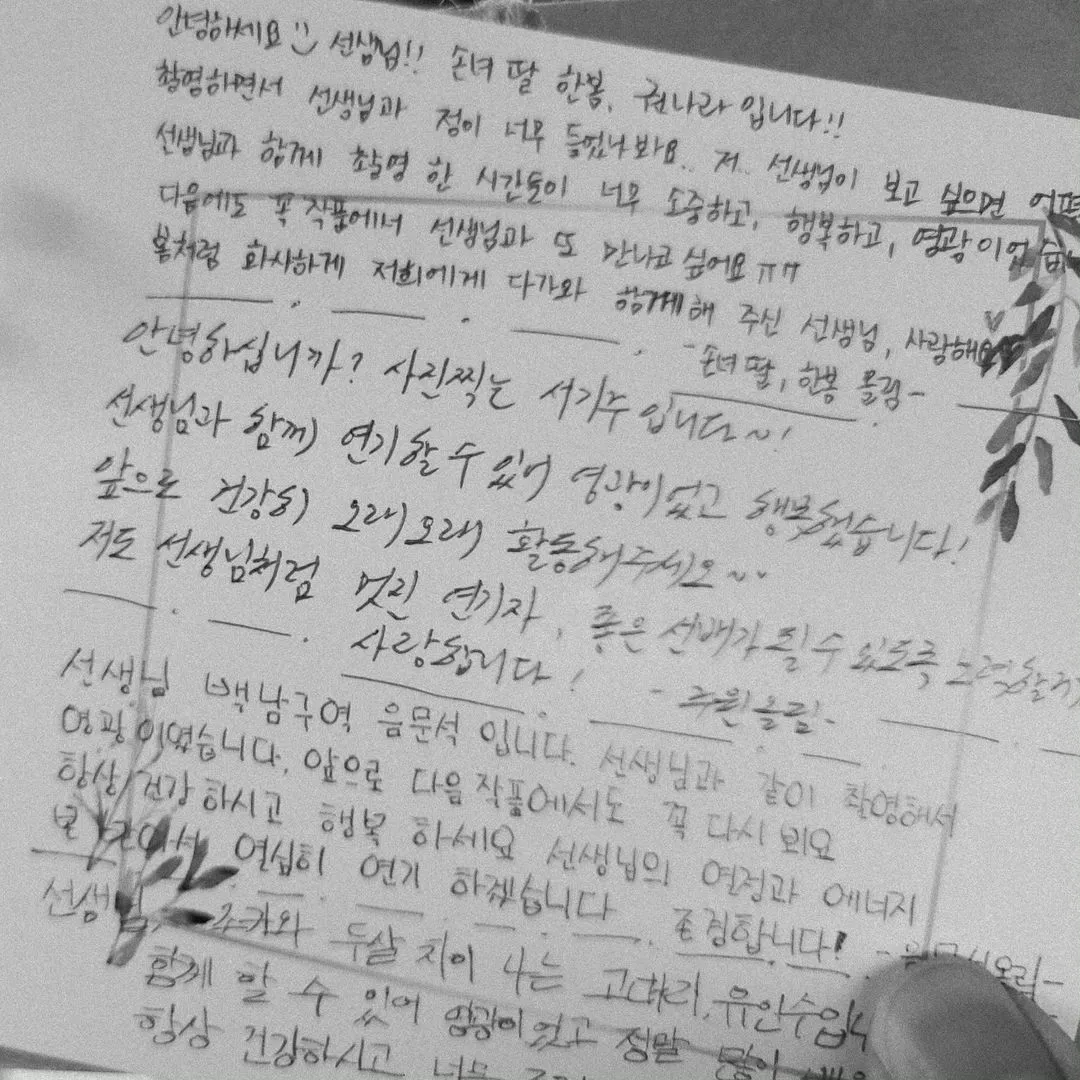 안녕하세요 :) 선생님!! 손녀 딸 한봄, 권나라 입니다!!
촬영하면서 선생님과 정이 너무 들었나봐요.. 저.. 선생님이 보고 싶으면
선생님과 함께 촬영 한 시간들이 너무 소중하고, 행복하고, 영광이었습
다음에도 꼭 작품에서 선생님과 또 만나고 싶어요 ㅠㅠ
봄처럼 화사하게 저희에게 다가와 함께해 주신 선생님, 사랑해요♡
- 손녀 딸, 한봄 올림 -
안녕하십니까? 사진찍는 서기주입니다~!
선생님과 함께 연기할 수 있어 영광이었고 행복했습니다!
앞으로 건강히 오래오래 활동해주세요~~
저도 선생님처럼 멋진 연기자, 좋은 선배가 될 수 있도록
사랑합니다! - 주원 올림 -
선생님 백남구역 음문석 입니다. 선생님과 같이 촬영해서
영광이였습니다. 앞으로 다음 작품에서도 꼭 다시 뵈요
항상 건강 하시고 행복 하세요 선생님의 열정과 에너지
열심히 연기 하겠습니다 존경합니다! - 음문석 올림 -
선생님, 조카와 두살 차이 나는 고대리, 유인수입
함께 할 수 있어 영광이었고 정말 많이
항상 건강하시고 너무